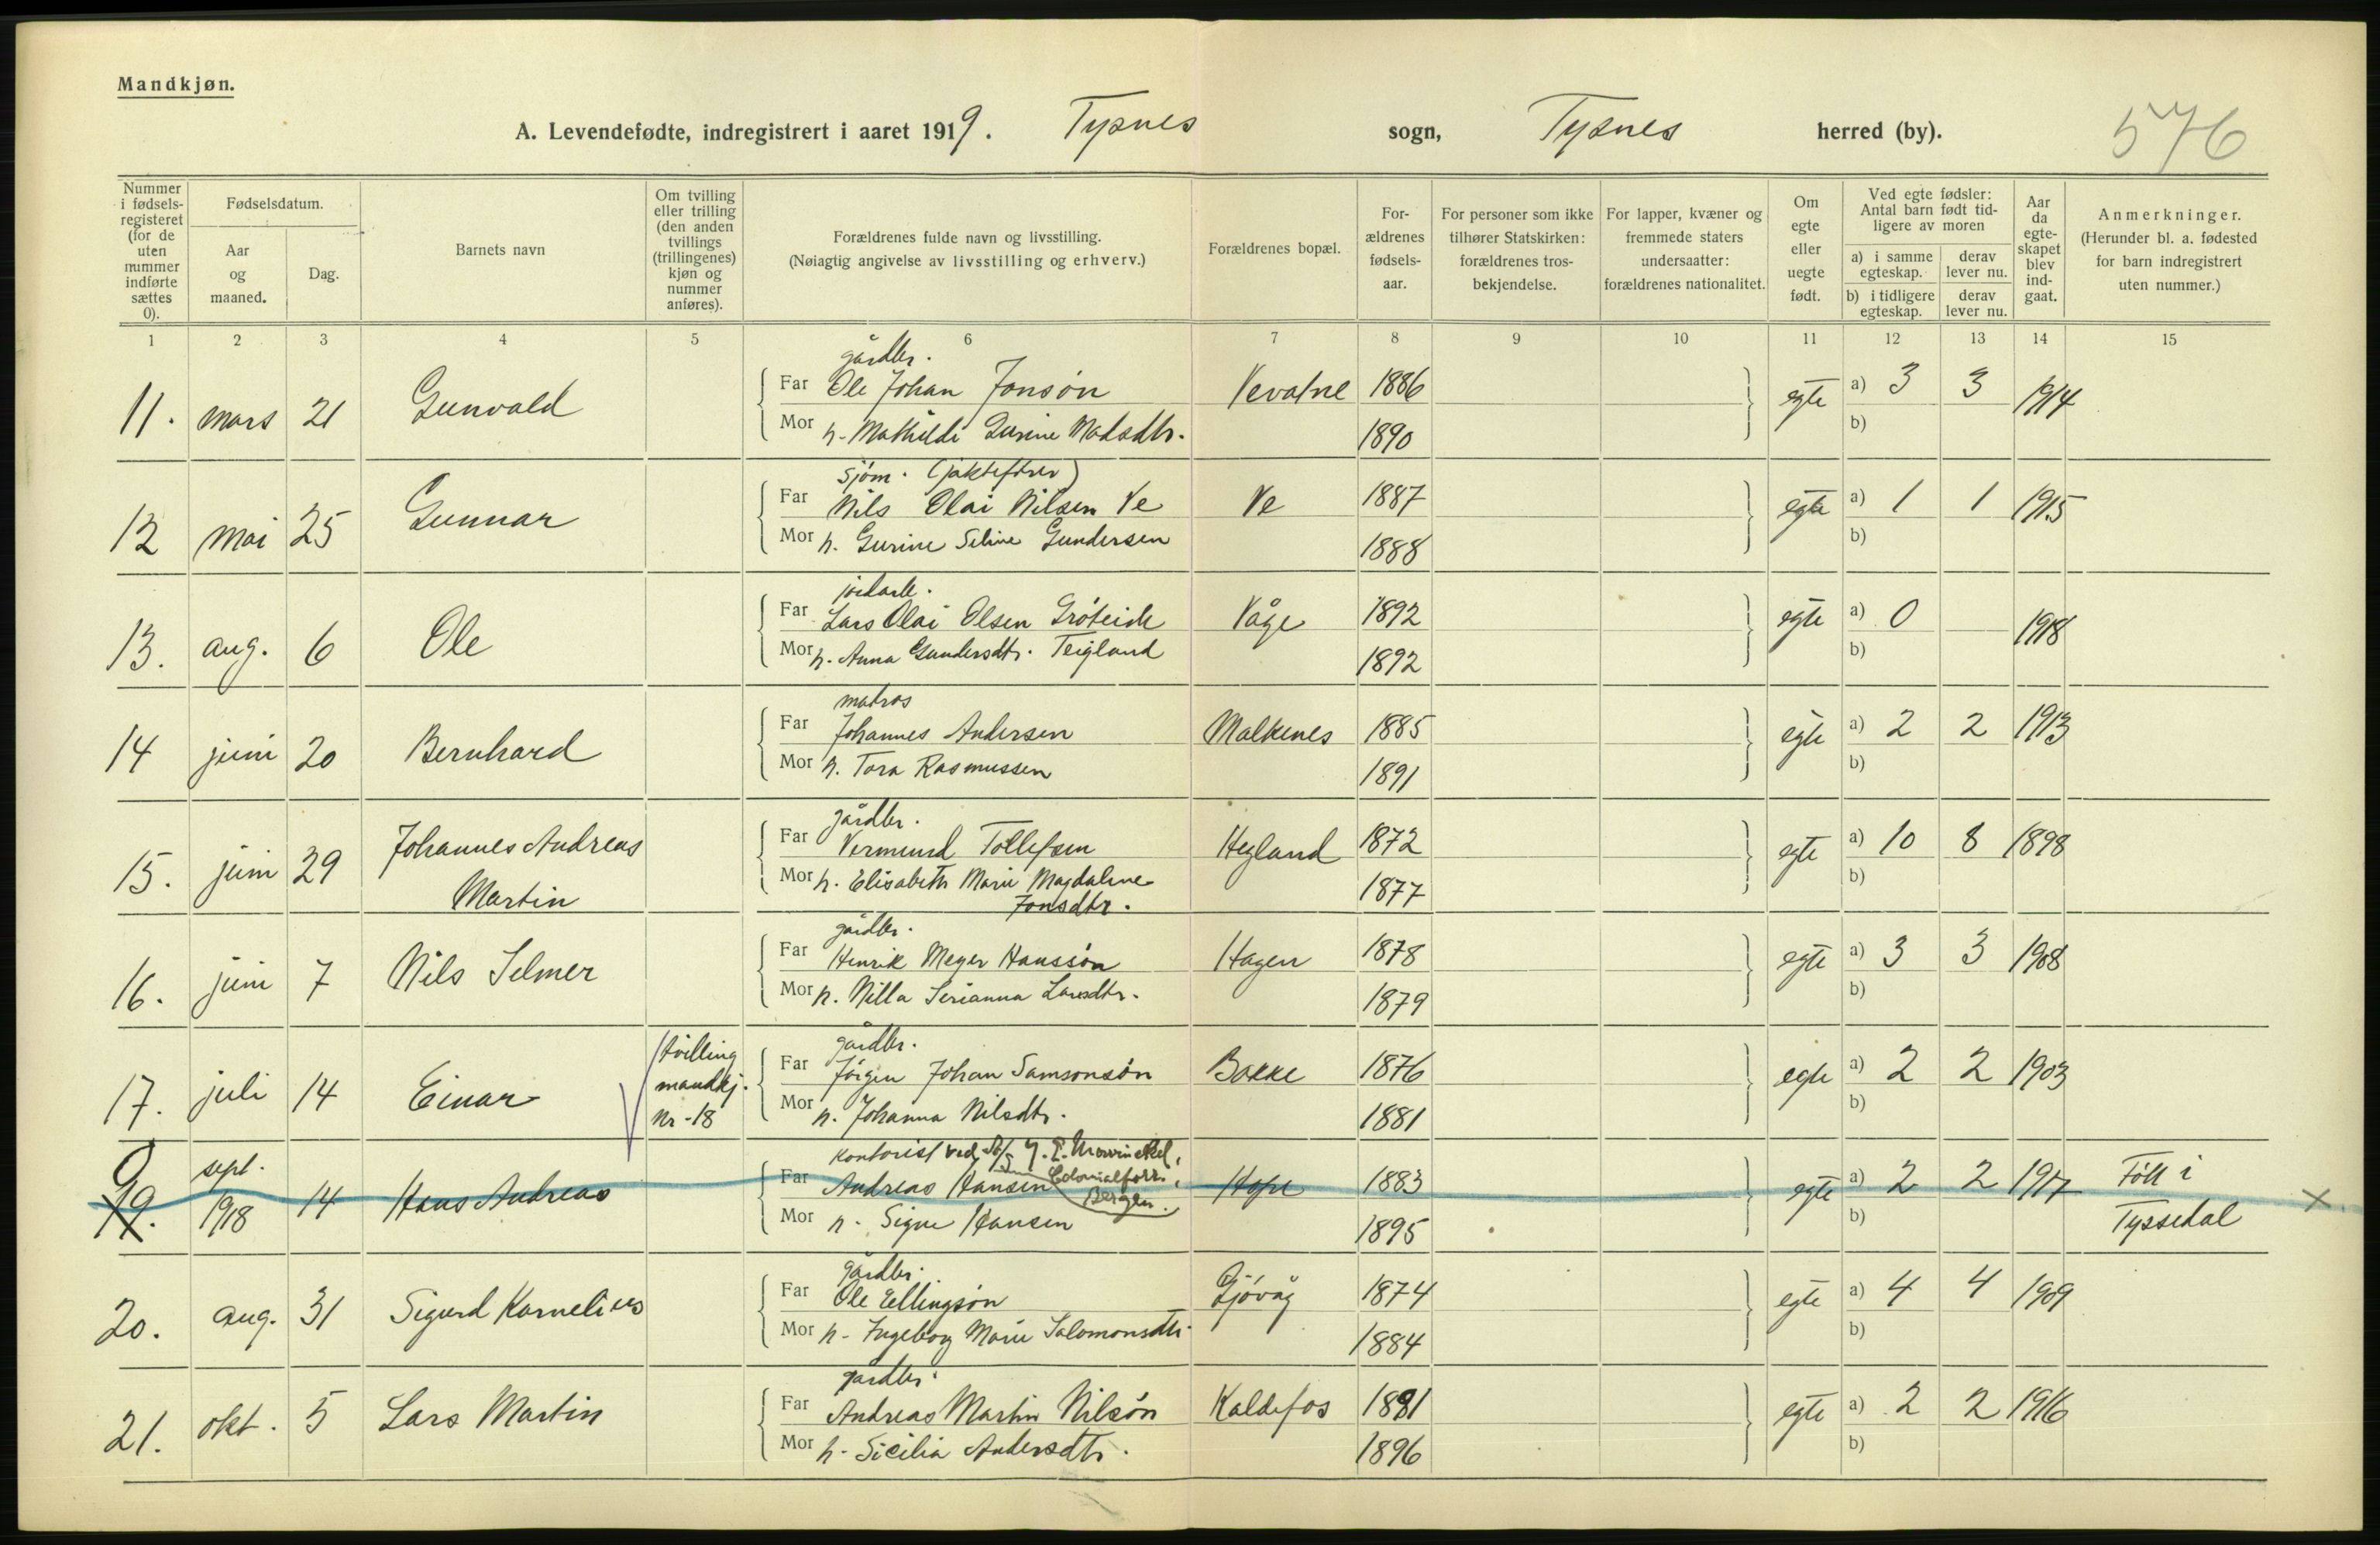 Mandkjøn.
A. Levendefødte, indregistrert i aaret 1919. Tysnes sogn, Tysnes herred (by). 576
Nummer i fødsels-registeret (for de uten nummer indførte sættes 0).
Fødselsdatum.
Aar og maaned.
Dag.
Barnets navn
Om tvilling eller trilling (den anden tvillings (trillingenes) kjøn og nummer anføres).
Forældrenes fulde navn og livsstilling.
(Nøiagtig angivelse av livsstilling og erhverv.)
Forældrenes bopæl.
For-ældrenes fødsels-aar.
For personer som ikke tilhører Statskirken: forældrenes tros-bekjendelse.
For lapper, kvæner og fremmede staters undersaatter: forældrenes nationalitet.
Om egte eller uegte født.
Ved egte fødsler: Antal barn født tid-ligere av moren
a) i samme egteskap. derav lever nu.
b) i tidligere egteskap. derav lever nu.
Aar da egte-skapet blev ind-gaat.
Anmerkninger.
(Herunder bl. a. fødested for barn indregistrert uten nummer.)
1 2 3 4 5 6 7 8 9 10 11 12 13 14 15
gårdbr.
11. mars 21 Gunvald Far Ole Johan Jonsøn Vevatne 1886 egte a) 3 3 1914
Mor h. Mathilde Gurine Madsdtr. 1890 b)
sjøm. (jaktefører)
12 mai 25 Gunnar Far Nils Olai Nilsen Ve Ve 1887 egte a) 1 1 1915
Mor h. Gurine Seline Gundersen 1888 b)
jordarb.
13. aug. 6 Ole Far Lars Olai Olsen Grøteide Våge 1892 egte a) 0 1918
Mor h. Anna Gundersdtr. Teigland 1892 b)
matros
14 juni 20 Bernhard Far Johannes Andersen Malkenes 1885 egte a) 2 2 1913
Mor h. Tora Rasmussen 1891 b)
gårdbr.
15. juni 29 Johannes Andreas Far Vermund Tollefsen Hegland 1872 egte a) 10 8 1898
Martin Mor h. Elisabeth Marie Magdalene 1877 b)
Jonsdtr.
gårdbr.
16. juni 7 Nils Selmer Far Henrik Meyer Hanssøn Hagen 1878 egte a) 3 3 1908
Mor h. Nilla Serianna Larsdtr. 1879 b)
gårdbr.
17. juli 14 Einar tvilling mandkj. Nr - 18 Far Jörgen Johan Samsonsøn Bakke 1876 egte a) 2 2 1903
Mor h. Johanna Nilsdtr. 1881 b)
kontorist ved A/S J. L. Mowinckel, Colonialforr., Bergen.
0 19. sept. 1918 14 Hans Andreas Far Andreas Hansen Hope 1883 egte a) 2 2 1917 Fött i
Mor h. Signe Hansen 1895 b) Tyssedal X
gårdbr.
20. aug. 31 Sigurd Kornelius Far Ole Ellingsøn Gjövåg 1874 egte a) 4 4 1909
Mor h. Ingeborg Marie Salomonsdtr. 1884 b)
gårdbr.
21. okt. 5 Lars Martin Far Andreas Martin Nilsøn Kaldefos 1881 egte a) 2 2 1916
Mor h. Sicilia Andersdtr. 1896 b)